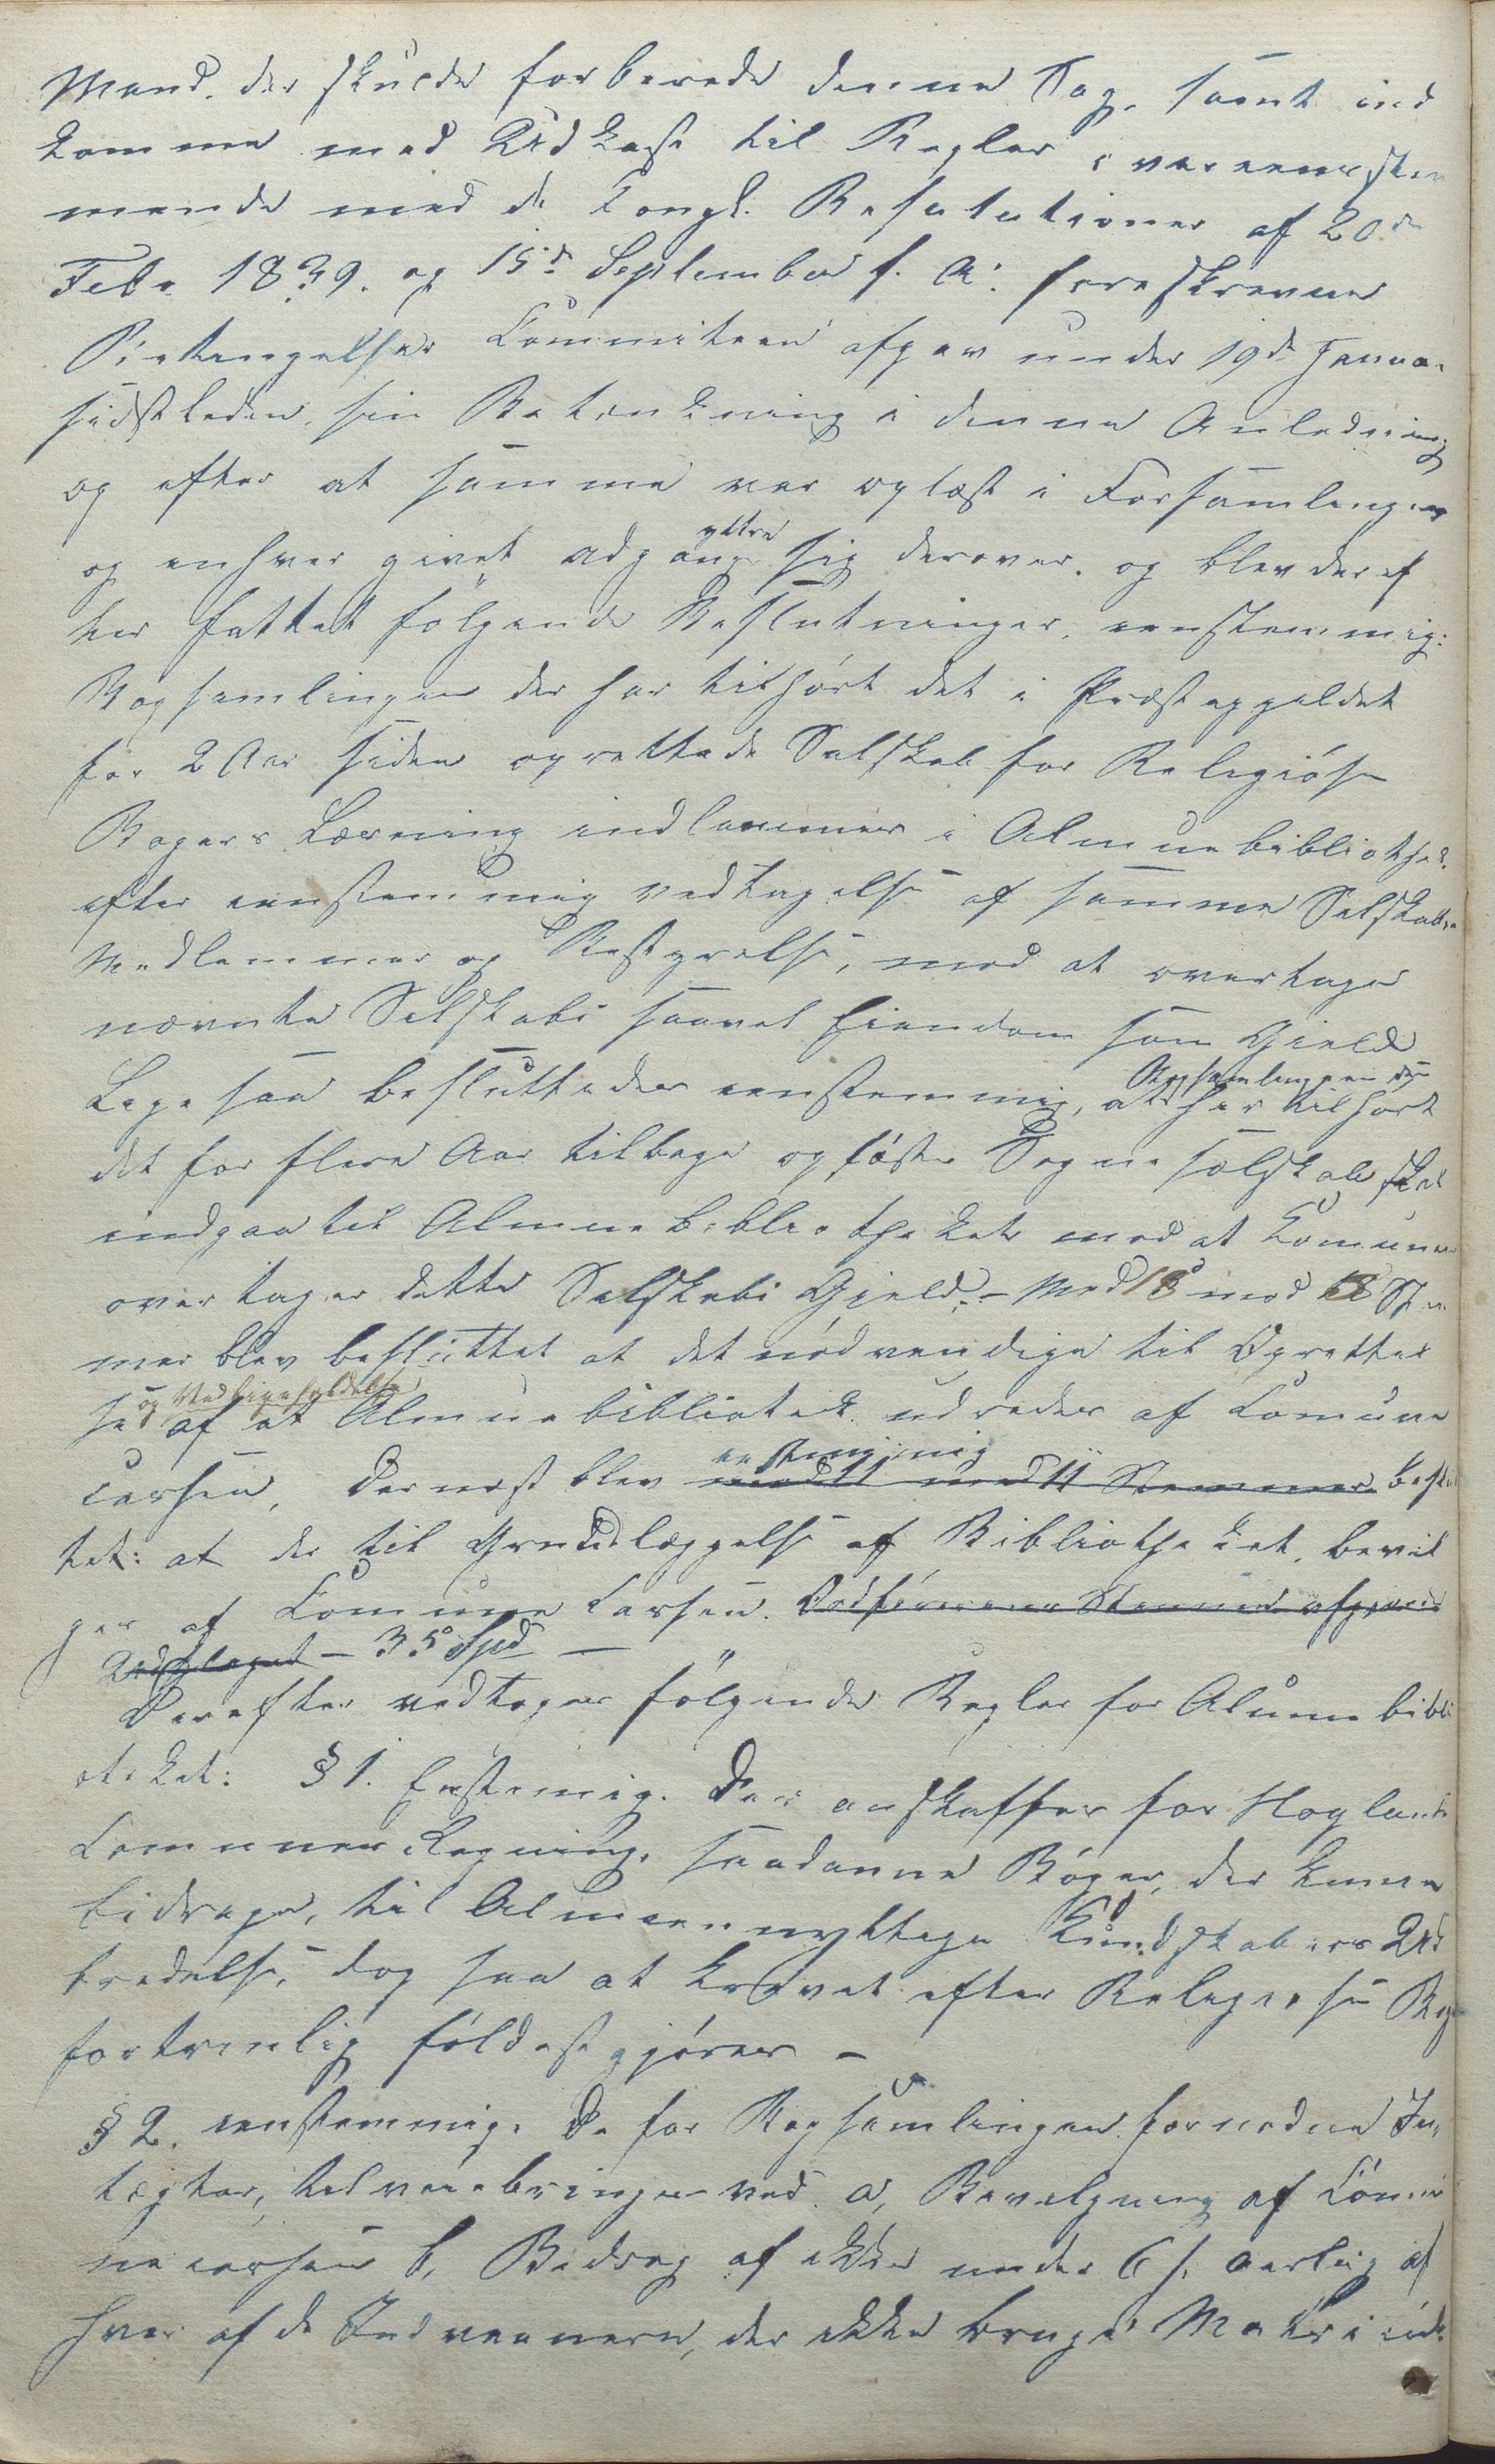 Mænd, der skulde forberede denne Sag, samt ind
komme med Udkast til Regler i overeensstem
mende med de Kongl. Resulutioner af 20de
Febr. 1839. og 15de September s. A: foreskrevne
Committeen afgav under 19de Janua.
sidstleden, sin Betænkning i denne Anledning
og efter at samme var oplæst i Forsamlingen
og enhver givet adgang yttre sig derover. og blev deref
ter fattet følgende Beslutninger, eenstemmig:
Bogsamlingen der har tilhørt det i Præstegjeldet
for 2 Aar siden oprettede Selskab for Religiøse
Bøgers Læsning indlemmes i Almuebibliothek.
efter eenstemmig vedtagelse af samme Selskabs
Medlemmer og Bestyrelse, mod at overtage
nævnte Selskabs saavel Eiendom som Gield
Lige saa besluttedes eenstemmig, at Bogsamlingen der har tilhørt
det for flere Aar tilbage opløste Sogneselskab skal
indgaa til Almuebibliotheket mod at Comunen
overtager dette Selskabs Gjeld. – Med 18 mod Stem
mer blev besluttet at det nødvendige til Oprettel
se og Vedligeholdelse af et Almuebibliothek udredes af Comune
cassen, Dernæst blev eenstemmig med 11 mod 11 Stemmer beslut
tet: at der til Grundlæggelse af Bibliotheket, bevil
ges af Comune Cassen. Ordførerens Stemme afgjorde
Udslaget – 35 Spd –
Derefter vedtoges følgende Regler for Almuebibli
oteket: § 1. Enstemig. Der anskaffes for Høglands
Comunes Regning, saadanne Bøger, der kunne
bidrage, til Almeennyttige Kundskabers Ud
bredelse, dog saa at Kravet efter Religiøse Bøg
fortrinlig fyldestgjøres –
§ 2. eenstemmig. De for Bogsamlingen fornødne In,
tægter, tilveiebringes ved a, Bevilgning af Comu
necassen b, Bidrag af ikke under 6 s. aarlig af
hver af de Indvaanere, der ikke bruge Matriculе